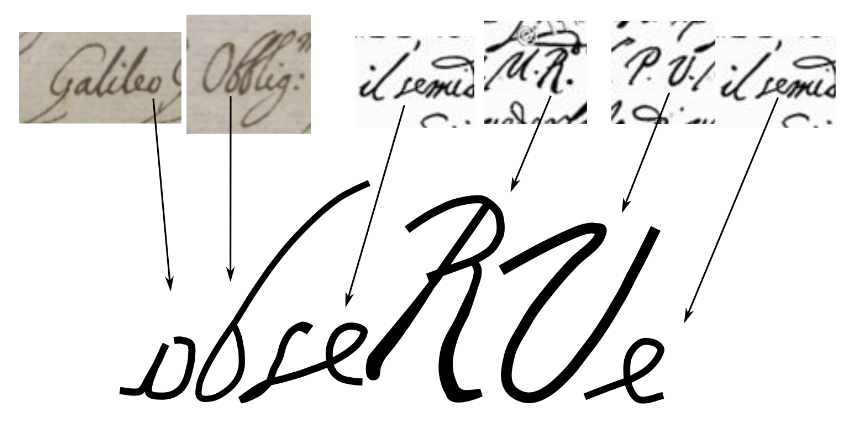 Galileo Obblig: il semid U.R. P. V. il semid
obseRVe